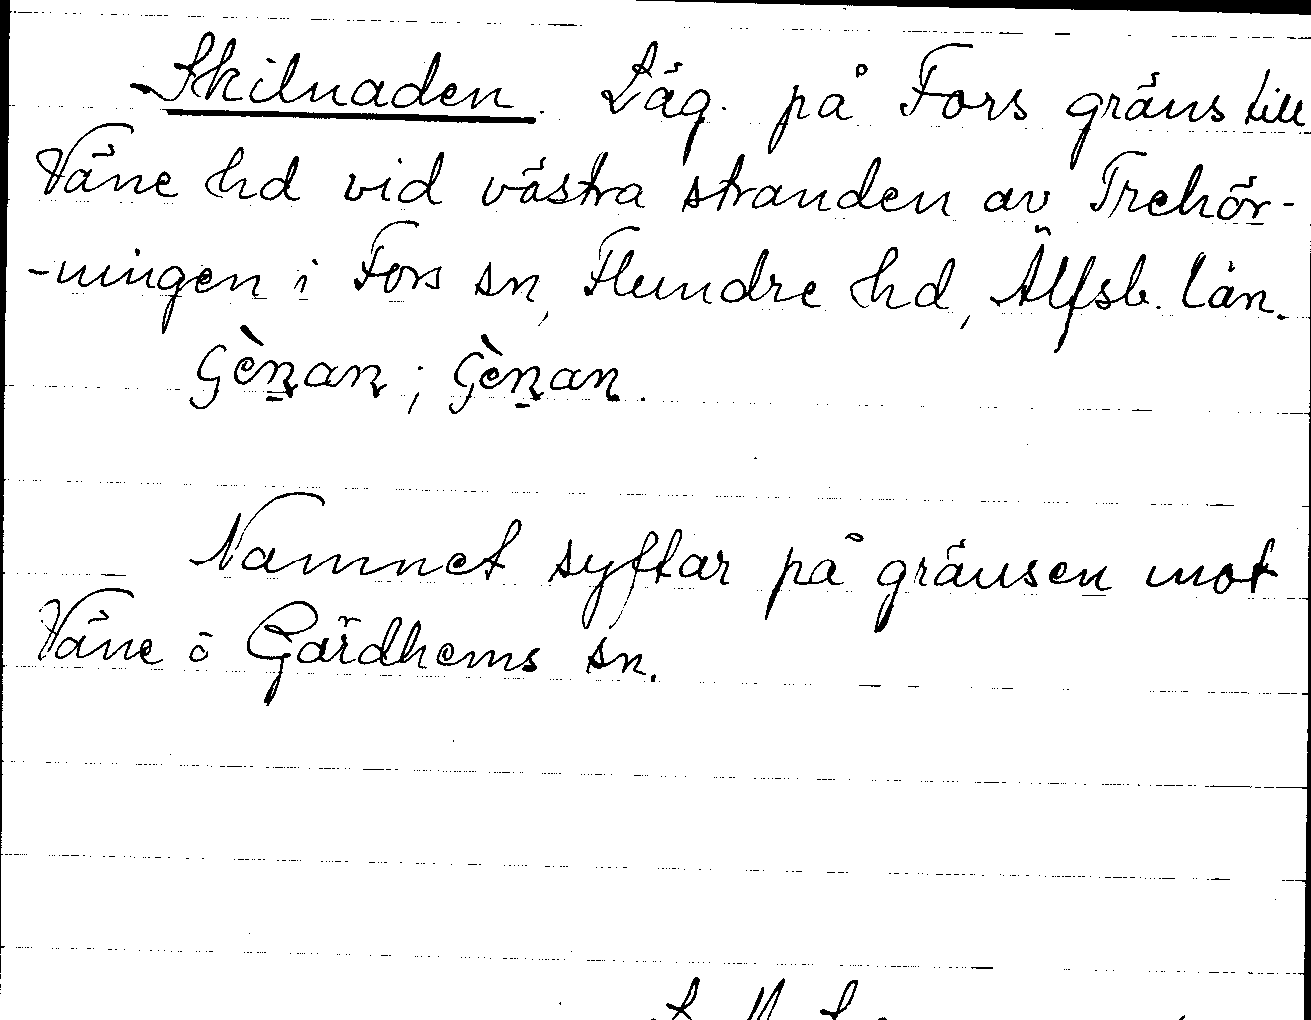 Skilnaden. Läg. på Fors gräns till
Väne hd vid västra stranden av Trehör-
-ningen i Fors sn, Flundre hd, Älfsb. län.
Namnet syftar på gränsen mot
Väne o Gärdhems sn.